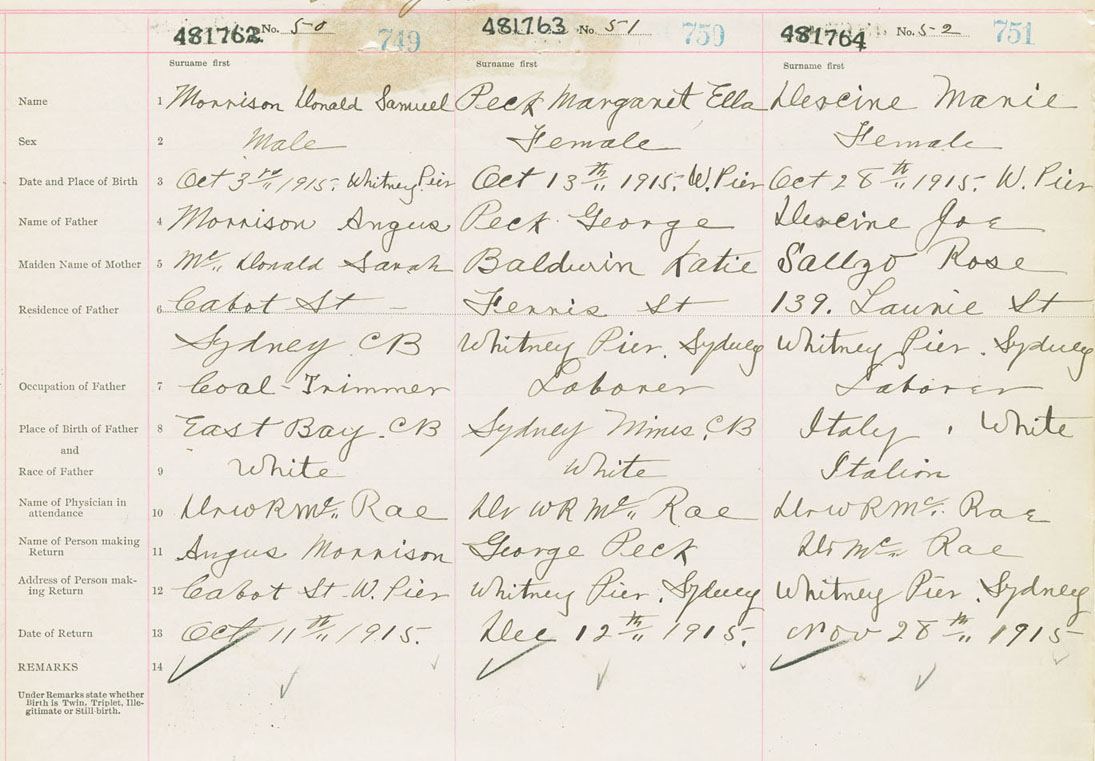 481762 No. 50 749 481763 No. 51 750 481764 No. 52 751
Surname first Surname first Surname first
Name 1 Morrison Donald Samuel Peck Margaret Ella Descine Marie
Sex 2 Male Female Female
Date and Place of Birth 3 Oct 3rd 1915. Whitney Pier Oct 13th 1915. W. Pier Oct 28th 1915. W. Pier
Name of Father 4 Morrison Angus Peck George Descine Joe
Maiden Name of Mother 5 Mc Donald Sarah Baldwin Katie Sallzo Rose
Residence of Father 6 Cabot St Ferris St 139. Laurie St
Sydney CB Whitney Pier. Sydney Whitney Pier. Sydney
Occupation of Father 7 Coal-Trimmer Laborer Laborer
Place of Birth of Father 8 East Bay. CB Sydney Mines. CB Italy, White
and
Race of Father 9 White White Italion
Name of Physician in attendance 10 Dr W R Mc Rae Dr W R Mc Rae Dr W R Mc Rae
Name of Person making Return 11 Angus Morrison George Peck Dr Mc Rae
Address of Person making Return 12 Cabot St. W. Pier Whitney Pier. Sydney Whitney Pier. Sydney
Date of Return 13 Oct 11th 1915. Dec 12th 1915. Nov 28th 1915
REMARKS 14
Under Remarks state whether
Birth is Twin, Triplet, Ille-
gitimate or Still-birth.